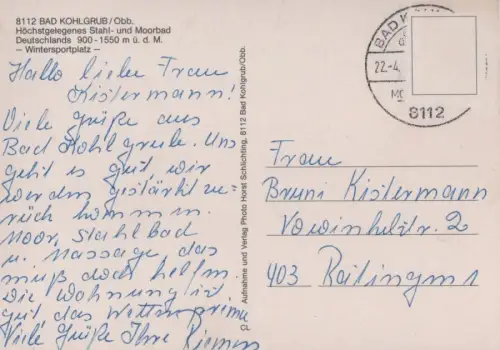 8112 BAD KOHLGRUB/Obb.
Höchstgelegenes Stahl- und Moorbad
Deutschlands 900-1550 m ü. d. M.
– Wintersportplatz –
Hallo liebe Frau
Kistermann!
Viele Grüße aus
Bad Kohlgrub. Uns
geht es gut, wir
werden gestärkt zu-
rück kommen.
Moor, Stahlbad
u. Massage, das
muß doch helfen.
Die Wohnung ist
gut das Wetter prima
Viele Grüße Ihre
Aufnahme und Verlag Photo Horst Schlichting, 8112 Bad Kohlgrub/Obb.
CL
BAD K
22.-4.
8112
Frau
Bruni Kistermann
2
403 Ratingen 1